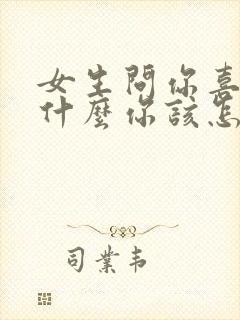 女生問你喜
什麼你該怎
司業韦